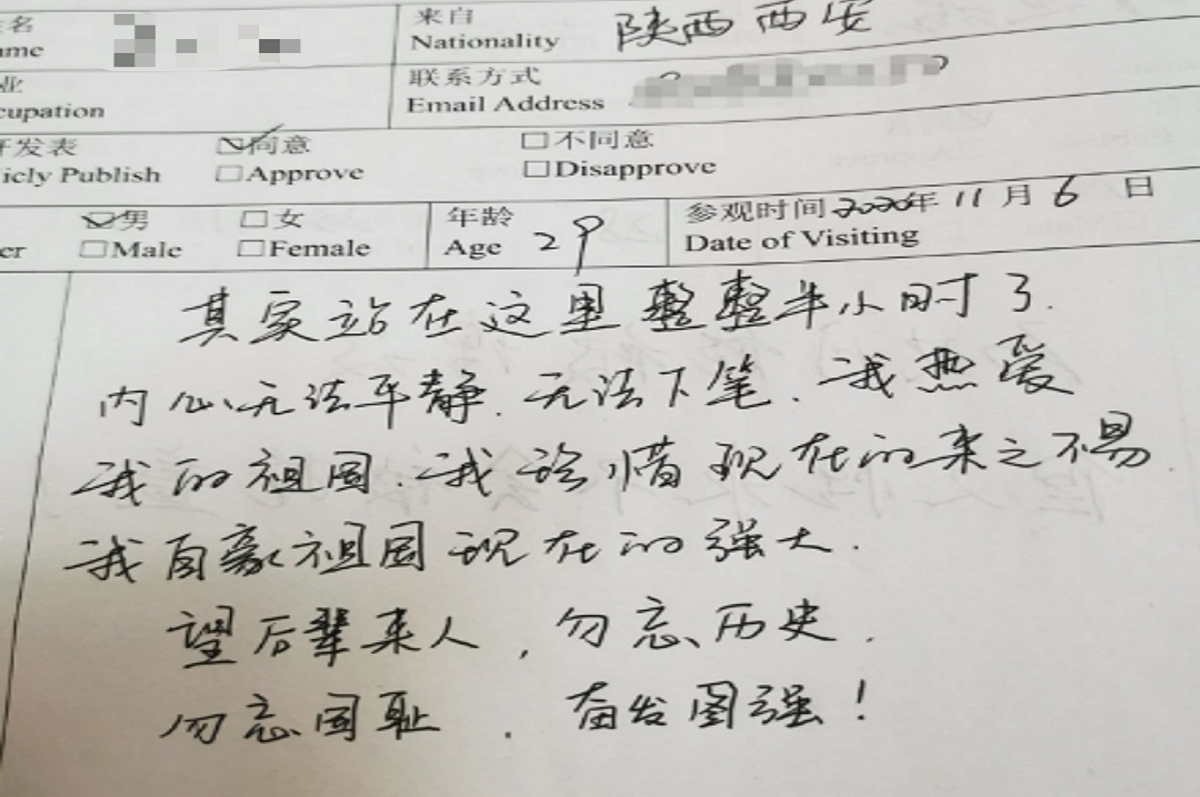 姓名 来自 陕西西安
ame Nationality
业 联系方式
cupation Email Address
开发表 同意 不同意
icly Publish Approve Disapprove
男 女 年龄 29 参观时间 2020年 11月 6 日
er Male Female Age Date of Visiting
其实站在这里整整半小时了.
内心无法平静.无法下笔.我热爱
我的祖国.我珍惜现在的来之不易.
我自豪祖国现在的强大.
望后辈来人,勿忘历史.
勿忘国耻.奋发图强!